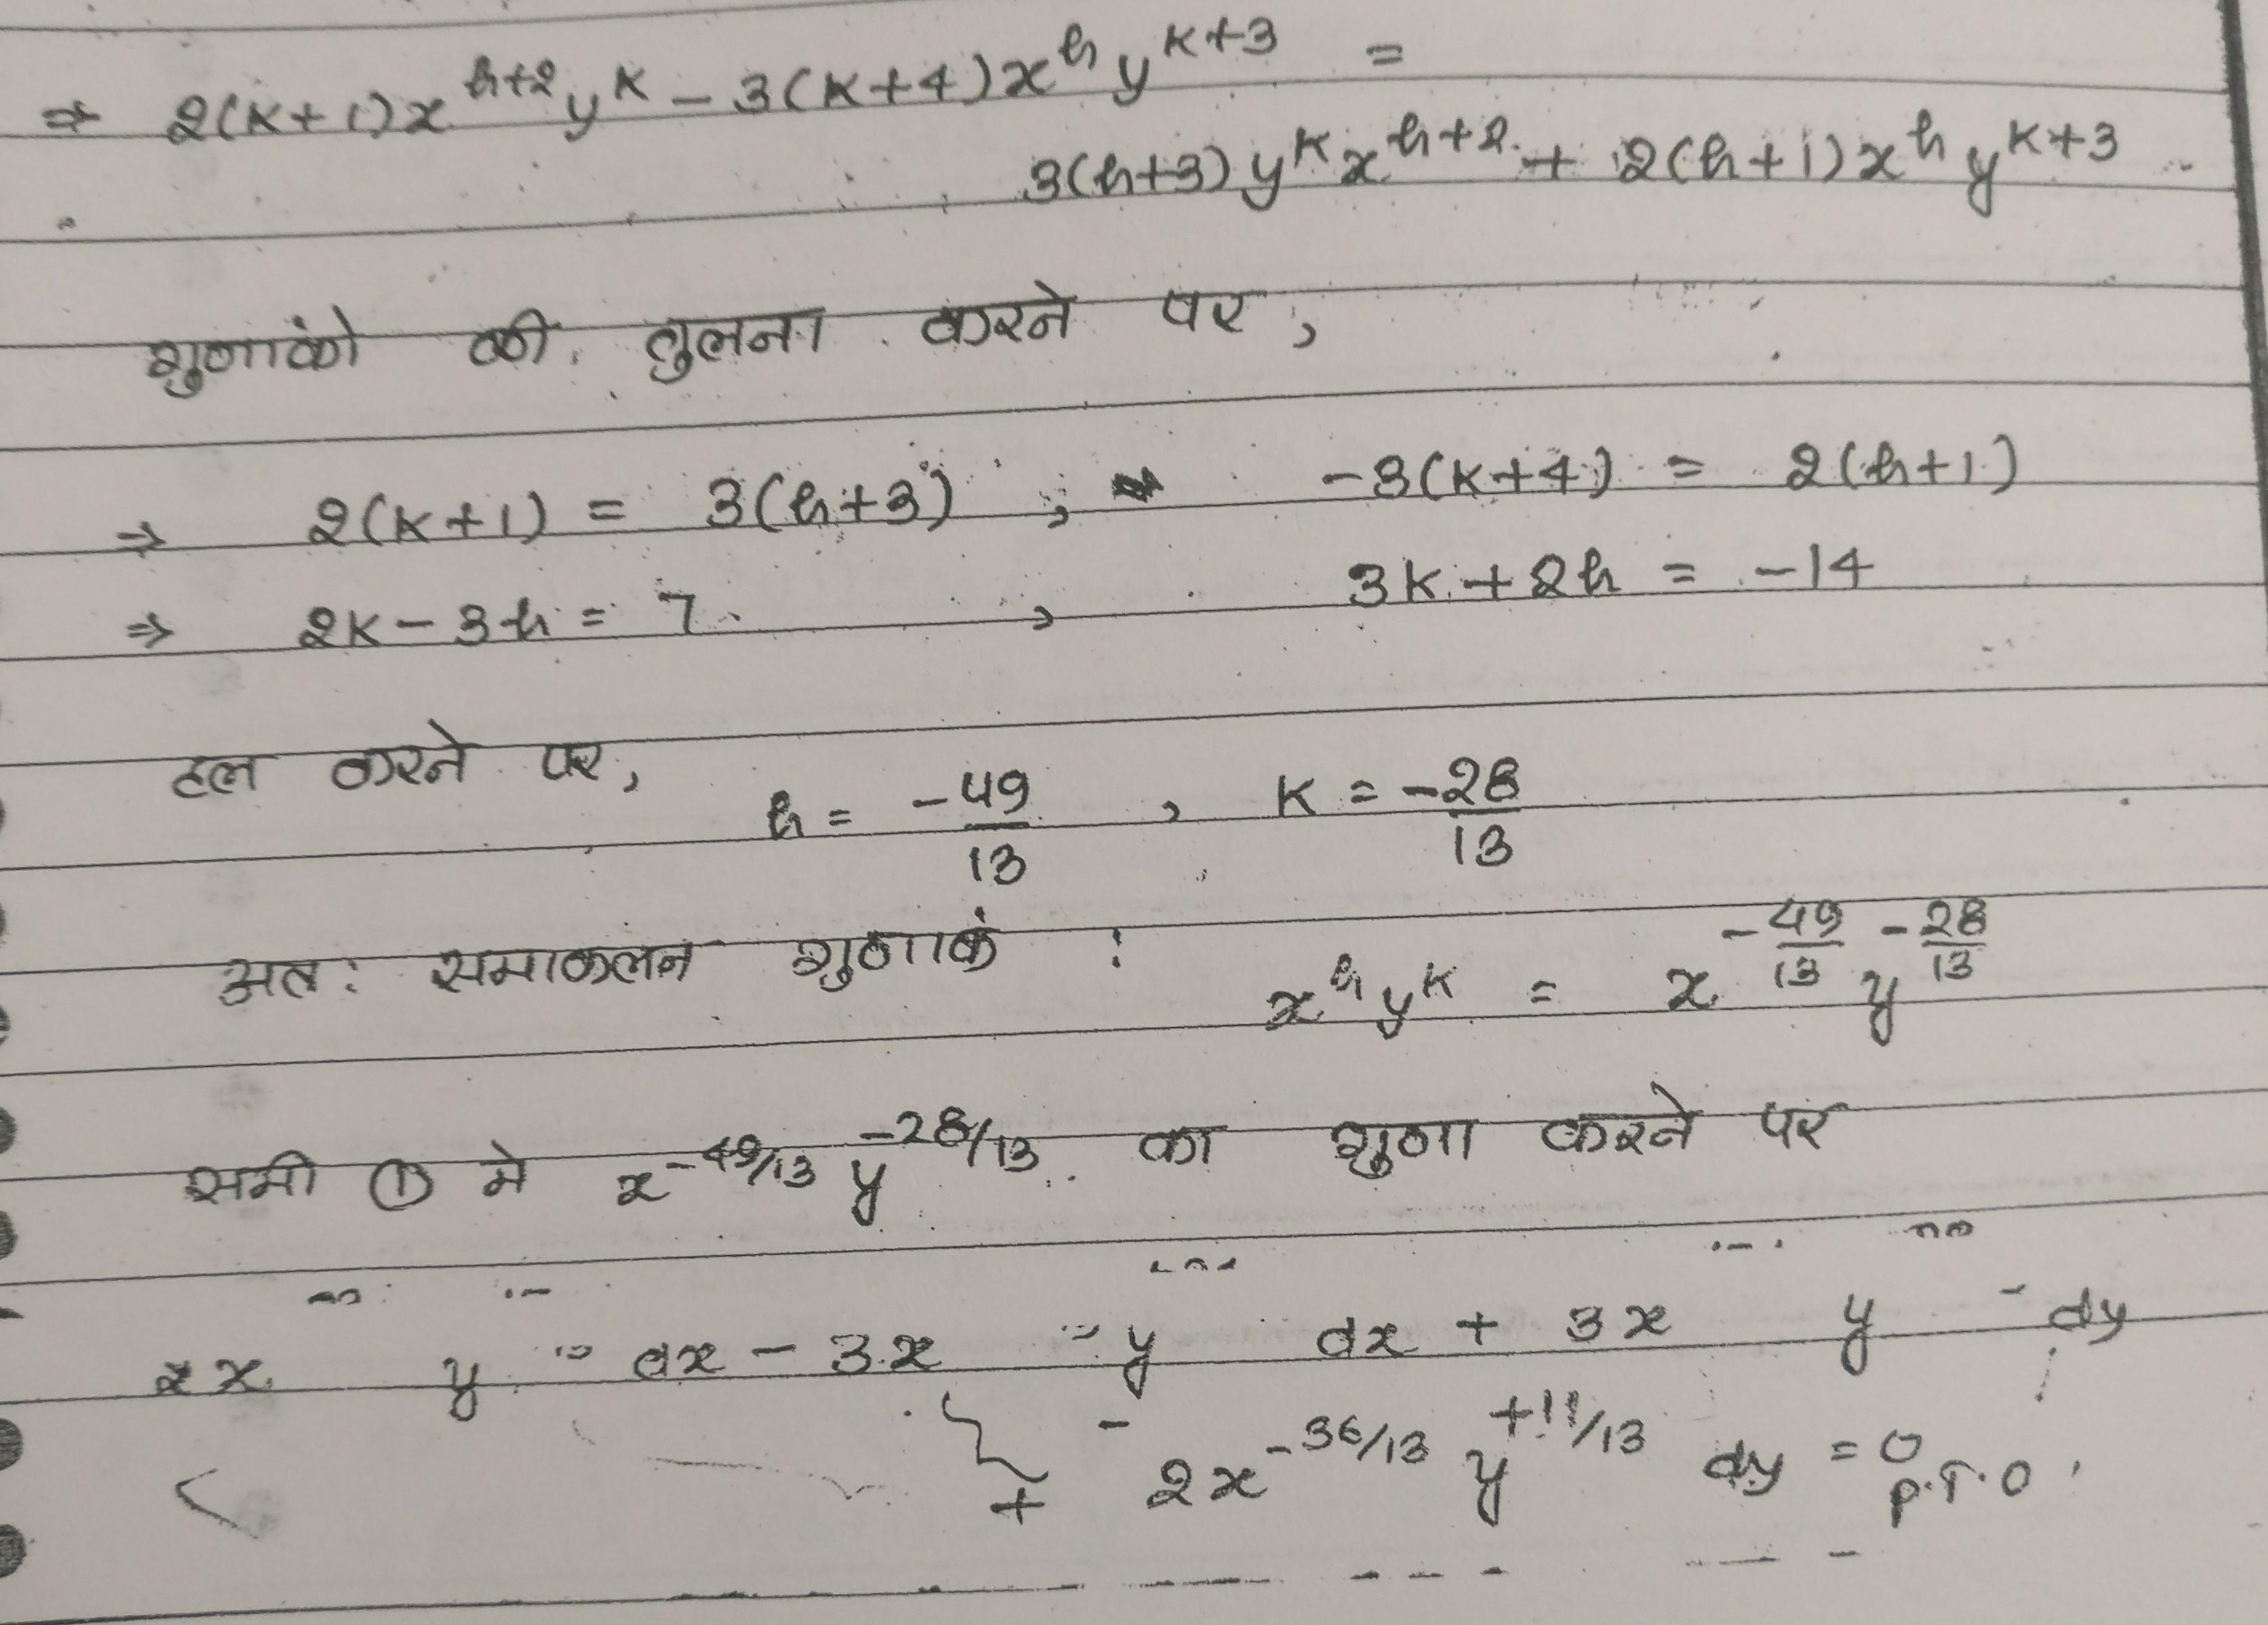 ⇒ 2(K+1)x^{h+2}y^{K} − 3(K+4)x^{h}y^{K+3} =
3(h+3)y^{K}x^{h+2} + 2(h+1)x^{h}y^{K+3}
गुणाकंो की तुलना करने पर,
⇒ 2(K+1) = 3(h+3) , -3(K+4) = 2(h+1)
⇒ 2K − 3h = 7 , 3K + 2h = -14
हल करने पर,
h = -49/13 , K = -28/13
अत: समाकलन गुणाकं : x^{h}y^{K} = x^{-49/13} y^{-28/13}
समी ① मे x^{-49/13} y^{-28/13} का गुणा करने पर
2x y dx − 3x y dx + 3x y dy
+ 2x^{-36/13} y^{+11/13} dy = 0
P.T.O.